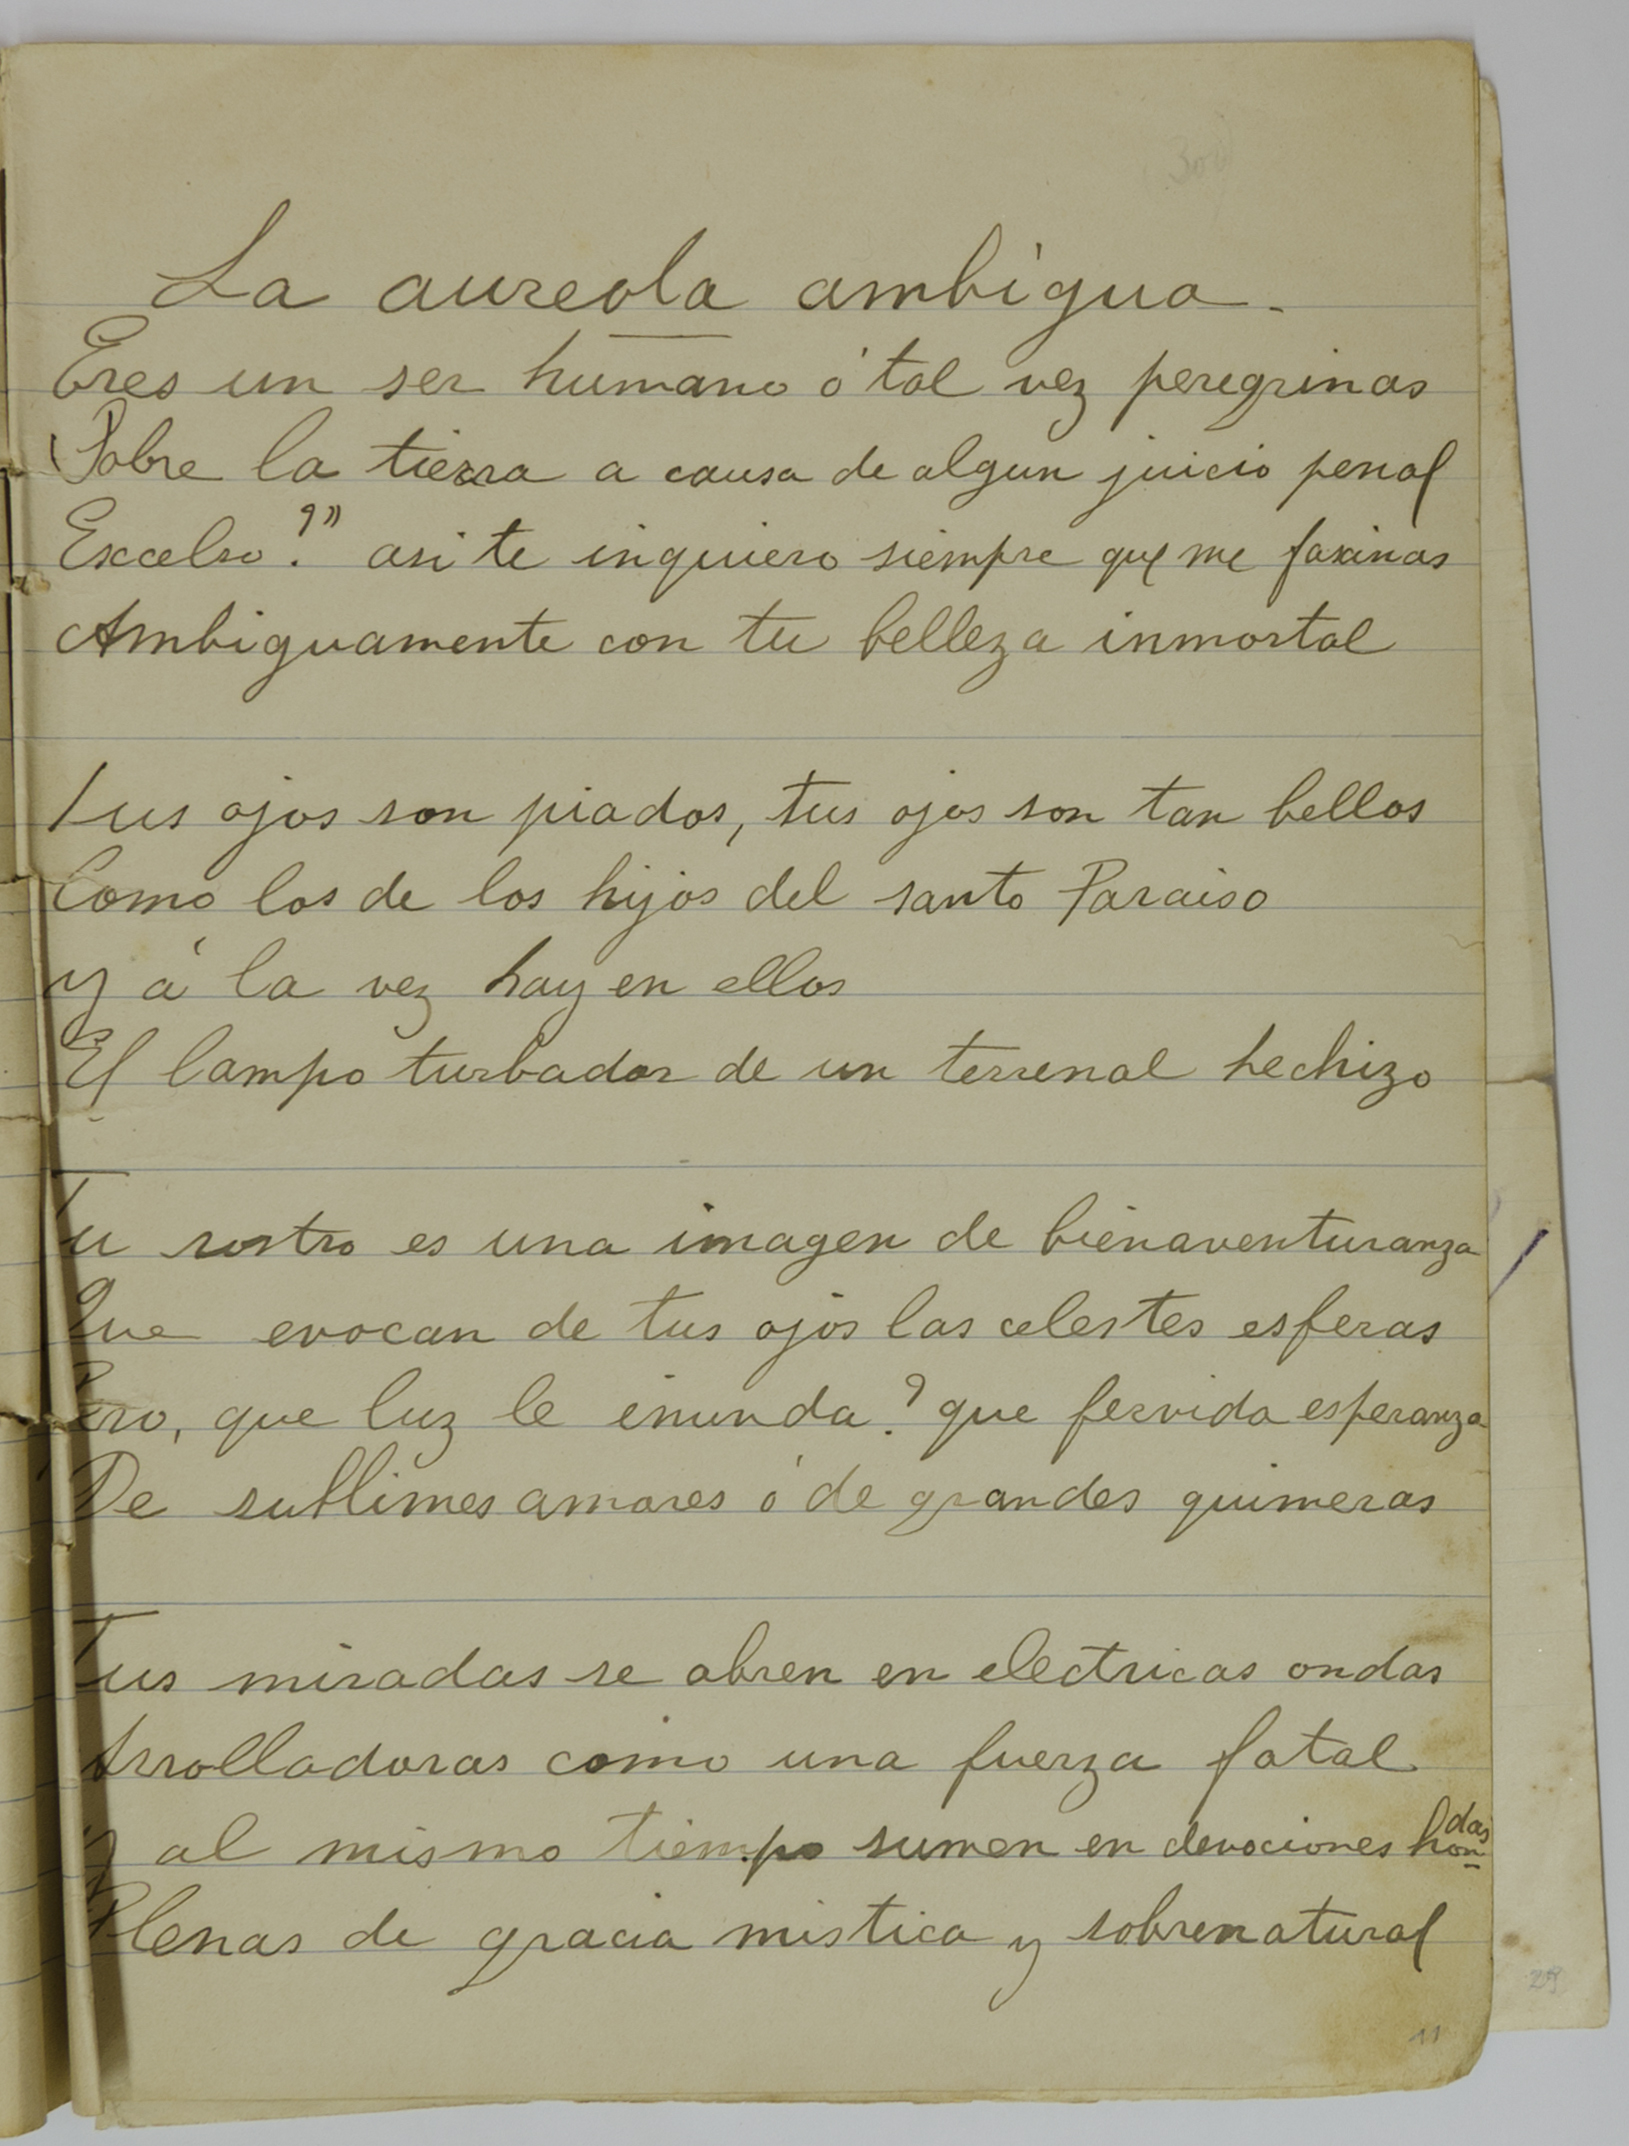 La aureola ambigua.
Eres un ser humano ó tal vez peregrinas
Sobre la tierra a causa de algun juicio penal
Excelso?" asi te inquiero siempre que me faxinas
Ambiguamente con tu belleza inmortal
Tus ojos son piados, tus ojos son tan bellos
Como los de los hijos del santo Paraiso
y á la vez hay en ellos
El lampo turbador de un terrenal hechizo
Tu rostro es una imagen de bienaventuranza
Que evocan de tus ojos las celestes esferas
Pero, que luz le inunda? que fervida esperanza
De sublimes amores ó de grandes quimeras
Tus miradas se abren en electricas ondas
Arrolladoras como una fuerza fatal
y al mismo tiempo sumen en devociones hondas
Plenas de gracia mistica y sobrenatural
11